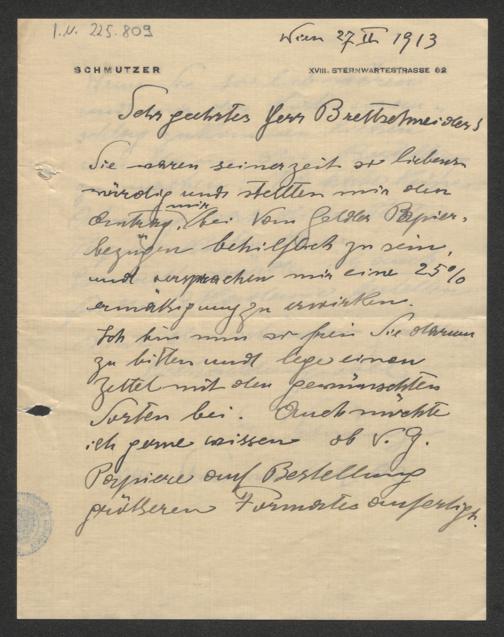 I.N. 225.809
Wien 27 II 1913
SCHMUTZER
XVIII. STERNWARTESTRASSE 62
Sehr geehrter Herr Brettschneider!
Sie waren seinerzeit so liebens-
würdig und stellten mir den
Antrag, mir bei Van Gelder Papier-
bezügen behilflich zu sein,
und versprachen mir eine 25%
ermäßigung zu erwirken.
Ich bin nun so frei Sie darum
zu bitten und lege einen
Zettel mit den gewünschten
Sorten bei. Auch möchte
ich gerne wissen ob V. G.
Papiere auf Bestellung
größeren Formates anfertigt.